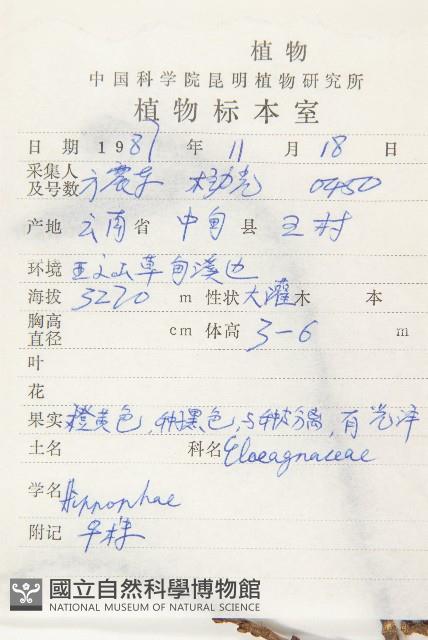 植物
中国科学院昆明植物研究所
植物标本室
日期 1987 年 11 月 18 日
采集人及号数 方震东 杨 0450
产地 云南省 中甸县 王村
环境 草甸溪边
海拔 3270 m 性状 大灌木 本
胸高直径 cm 体高 3-6 m
叶
花
果实 橙黄色,种黑色,与种分离,有光泽
土名 科名 Elaeagnaceae
学名 Hippophae
附记
國立自然科學博物館
NATIONAL MUSEUM OF NATURAL SCIENCE